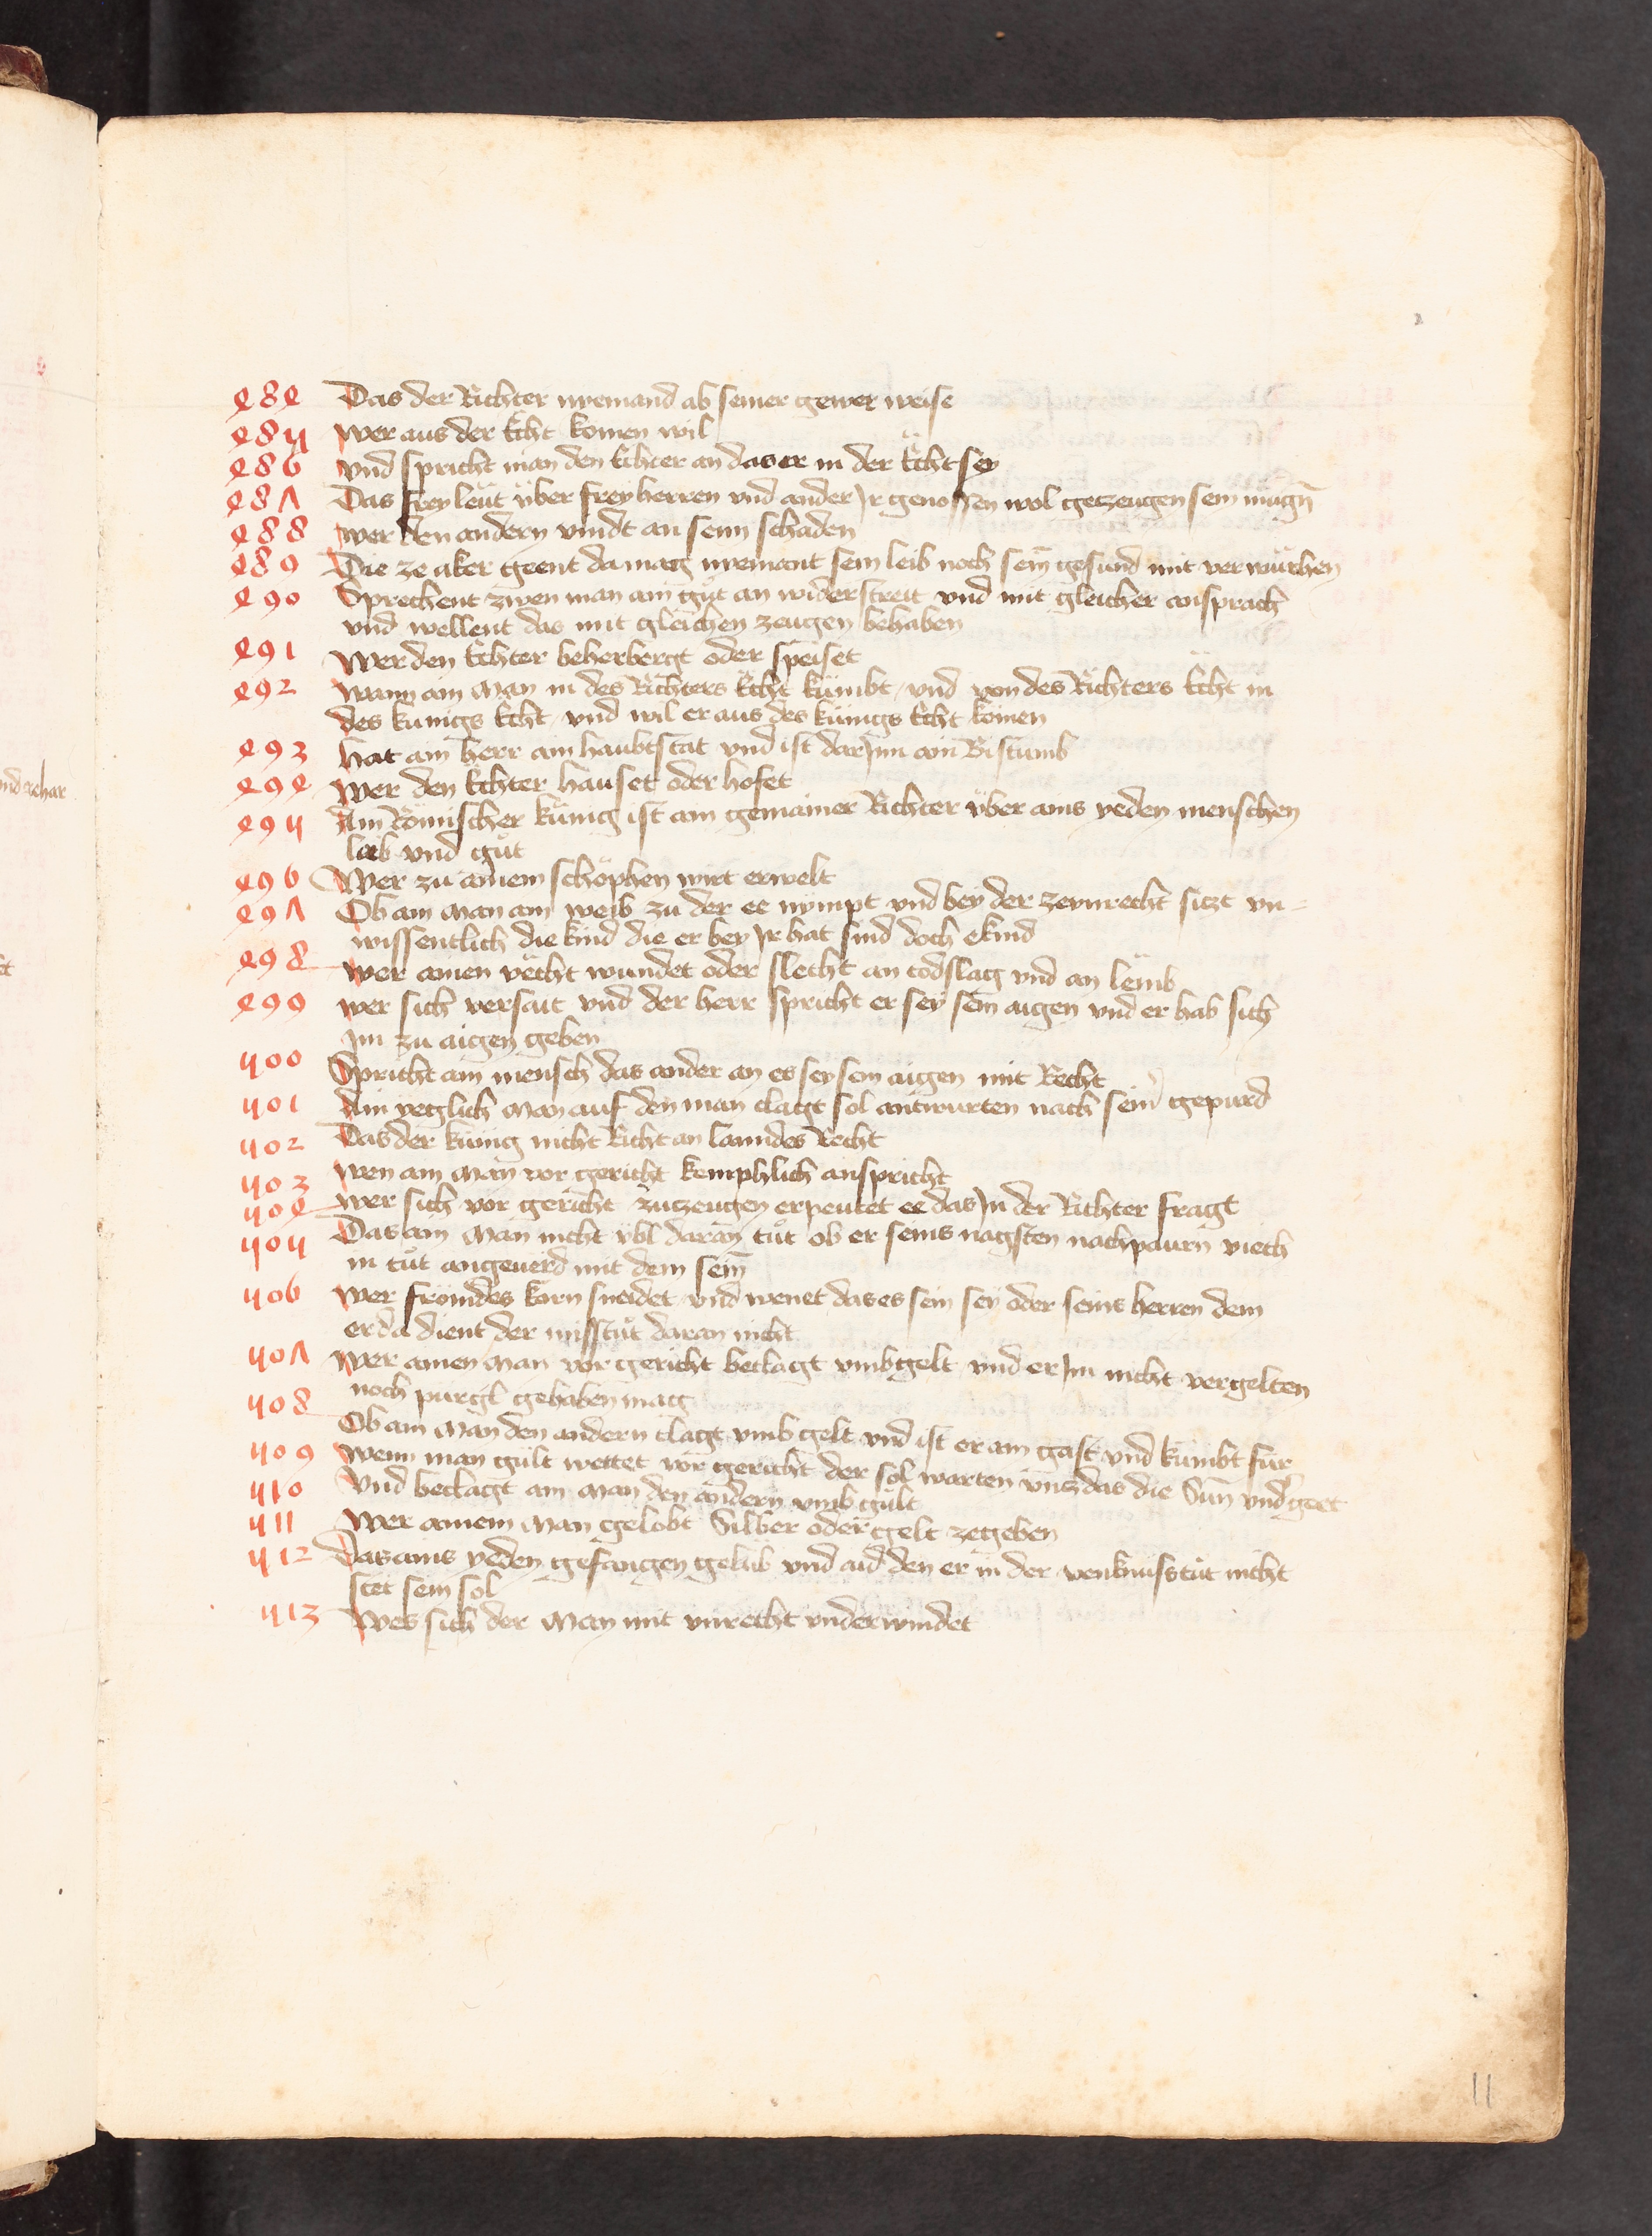 484 Das der Richter nyemand ab seiner gewer weise
485 wer aus der Ächt komen wil
486 vnd spricht man den Ächter an das er in der Ächt sey
487 Das freyleüt über freyherren vnd ander Ir genossen wol getzeugen sein mugn̄
488 wer den andern vindt an seim schaden
489 Die ze aker geent da mag nyemant sein leib noch sein gesund mit verwürchen
490 Sprechent zwen man ain gůt an widerstreit vnd mit gleicher ansprach
vnd wellent das mit gleichen zeugen behaben
491 Wer den Ächter beherbergt oder speiset
492 wann ain Man in des Richters Ächt kümbt / vnd von des Richters Ächt in
des kunigs Ächt / vnd wil er aus des künigs Ächt komen
493 hat ain herr ain haubtstat vnd ist darInn ain Bistumb
494 wer den Ächter hauset oder hofet
495 Ain Römischer künig ist ain gemainer Richter über ains yeden menschen
leib vnd gůt
496 Wer zu ainem schöphen wirt erwelt
497 Ob ain Man ain weib zu der ee nympt vnd bey der zeunrecht sitzt vn=
wissentlich die kind die er bey Ir hat sind doch ekind
498 wer ainen vächt wundet oder slecht an todslag vnd an lemb
499 wer sich versait vnd der herr spricht er sey sein aigen vnd er hab sich
Im zu aigen geben
500 Spricht ain mensch das ander an es sey sein aigen mit Recht
501 Ain yeglich Man auf den man clagt sol antwurten nach sein̄ gepurd
502 Das der künig nicht Richt an lanndes Recht
503 wen ain Man vor gericht kemphlich anspricht
504 wer sich vor gericht zuzeugen erpeutet ee das In der Richter fragt
505 Das ain Man nicht übl daran tůt ob er seins nagsten nachpaurn viech
in tůt angeuerd mit dem sein̄
506 wer frömdes korn sneidet vnd wenet das es sein sey oder seins herren dem
er da dient der misstůt daran nicht
507 wer ainen Man vor gericht beclagt vmb gelt vnd er Im nicht vergelten
noch purgl gehaben mag
508 Ob ain Man den andern clagt vmb gelt vnd ist er ain gast vnd kümbt für
509 wenn man gült wettet vor gericht der sol warten vnz das die Sun̄ vnd'geet
510 Vnd beclagt ain Man den andern vmb gült
511 Wer ainem Man gelobt Silber oder gelt zegeben
512 Das ains yeden gefangen gelüb vnd aid den er in der venknüss tůt nicht
stet sein sol
513 Wes sich der Man mit vnrecht vnderwindet
11